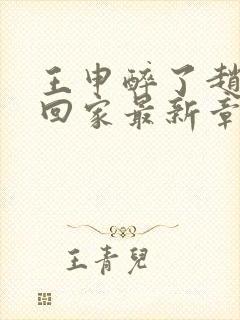 王申醉了趙
回家最新章
王青兒